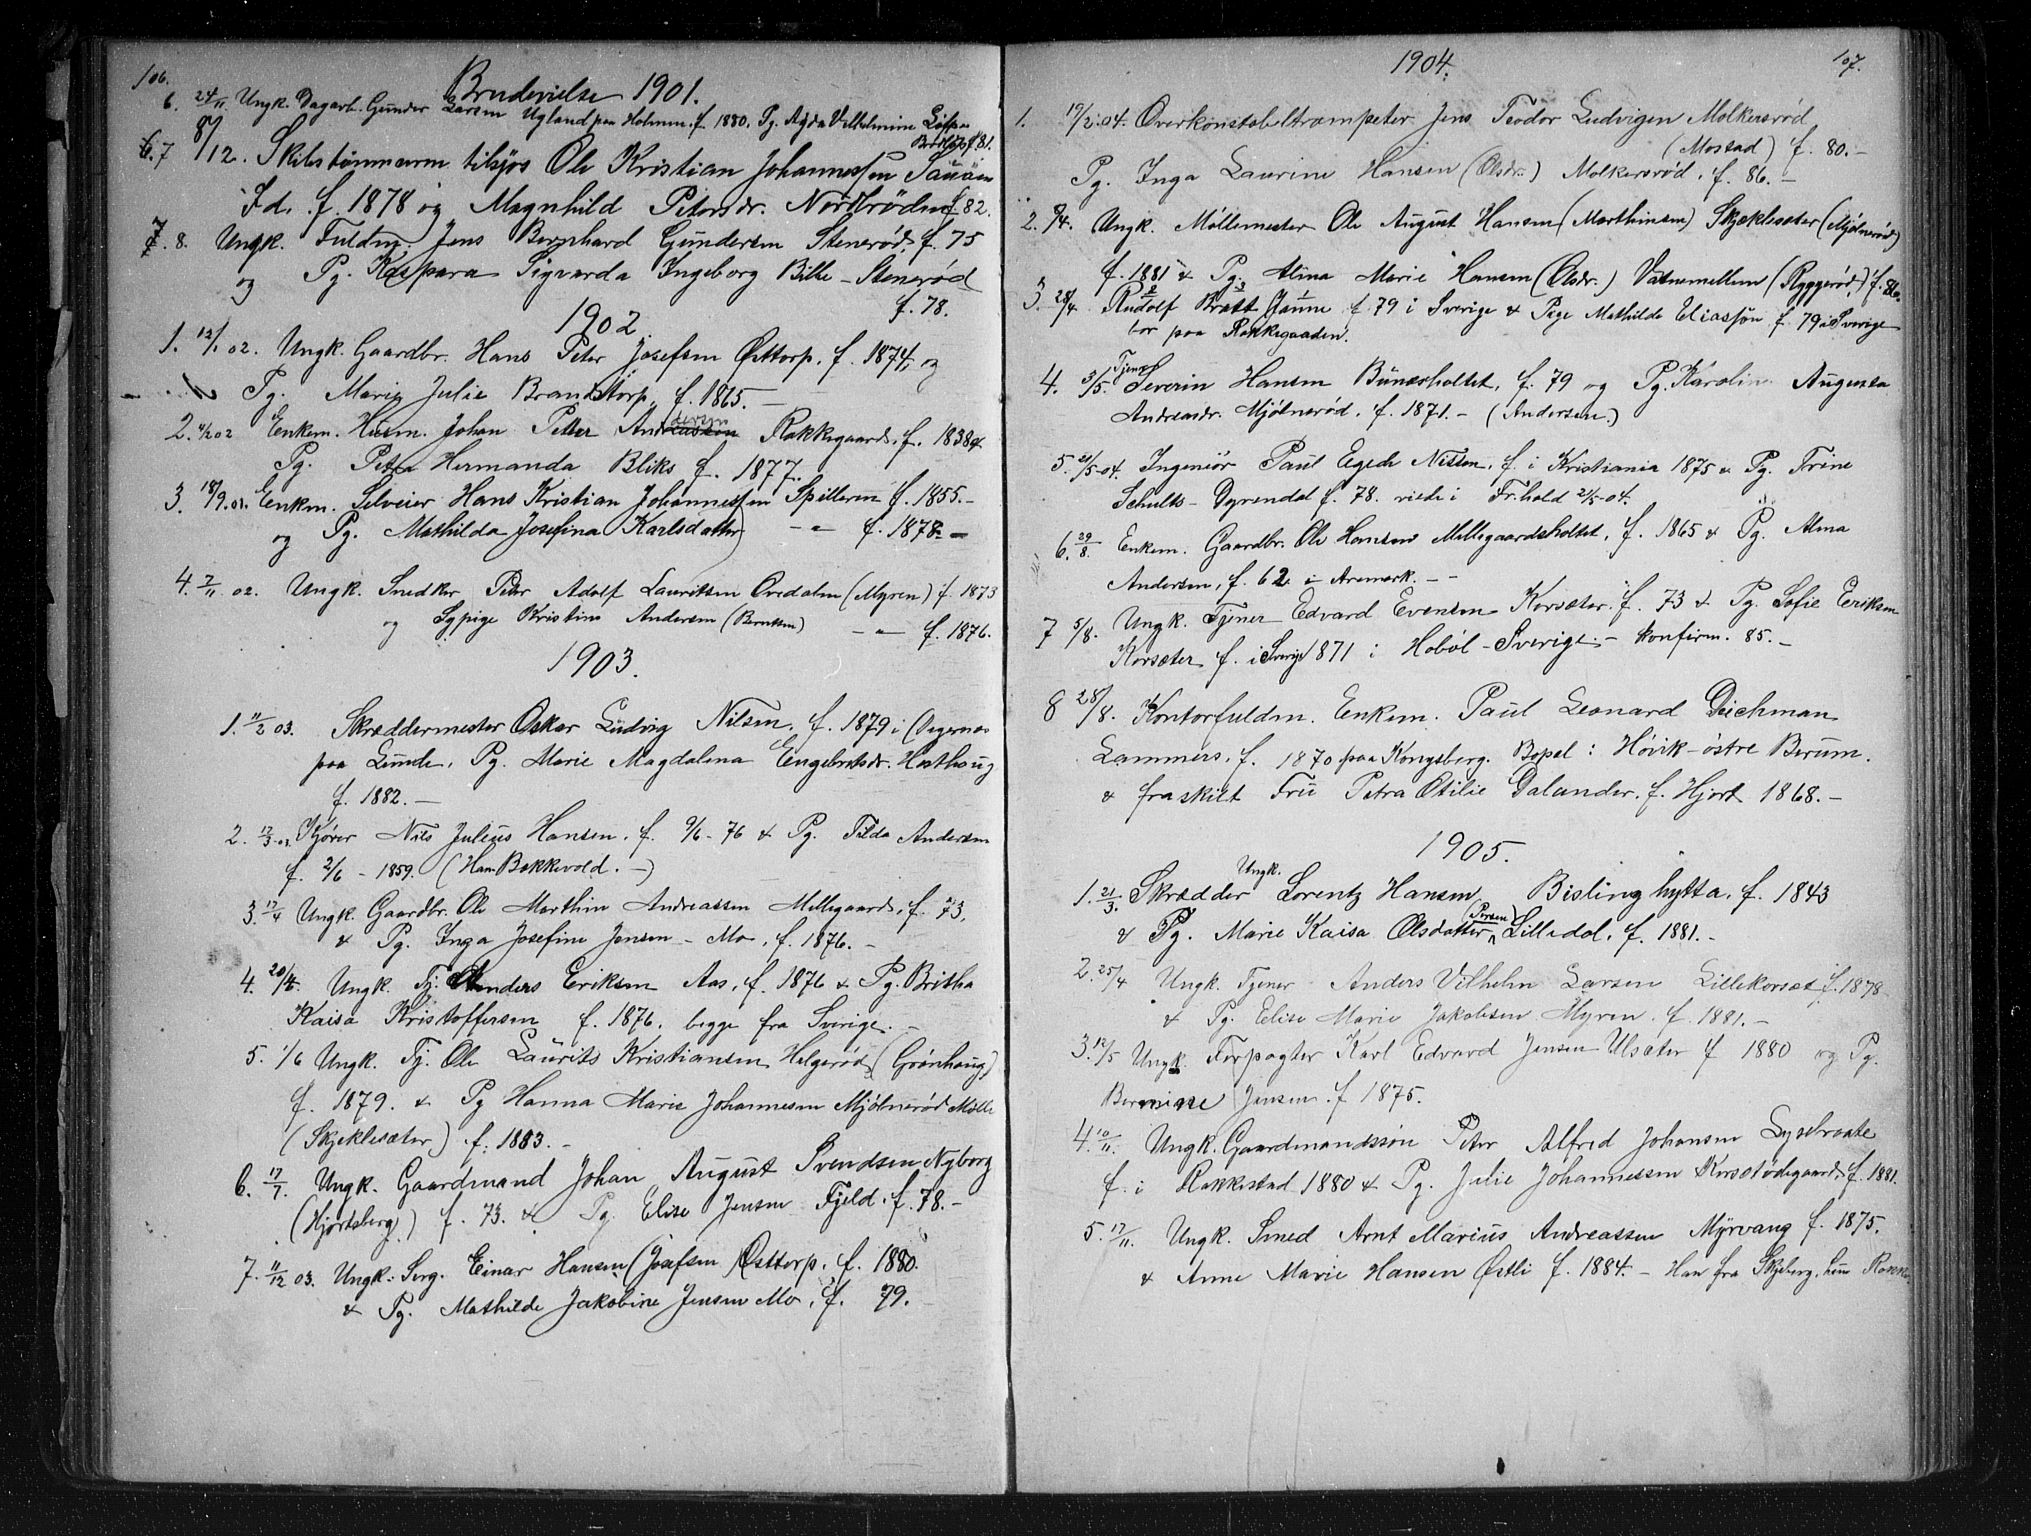 106.
Brudevielse 1901.
6. 24/11 Ungk. Dagarb. Gunder Larsen Ugland paa Holmen f. 1880. Pg. Agda Vilhelmine
f. 81.
6. 7 8/12. Skibstømmerm. tilsjøs Ole Kristian Johannessen
Id. f. 1878 og Magnhild Petersdr. Nordbrøden f. 82.
7. 8. Ungk. Fuldm. Jens Bernhard Gundersen Stenerød f. 75
og Pg. Kaspara Sigvarda Ingeborg Bille - Stenerød
f. 78.
1902
1. 12/1 02. Ungk. Gaardbr. Hans Peter Josefsen Østtorp. f. 1874, og
Pg. Marie Julie Brandtorp f. 1865. —
2. 4/2 02 Enkem. Husm. Johan Petter Andreassen dersen Rakkegaard, f. 1838 &
Pg. Petra Hermanda Bliks f. 1877.
3. 18/9. 02. Enkm. Selveier Hans Kristian Johannessen Spilleren f. 1855. -
og Pg. Mathilda Josefina Karlsdatter - " - f. 1878. -
4. 7/11. 02. Ungk. Snedker Peter Adolf Lauritsen Ovedalen (Myren) f. 1873
og Sypige Kristine Andersen (Berntsen) - " - f. 1876.
1903.
1. 11/2 03. Skræddermester Oskar Ludvig Nilsen, f. 1879 i Onsø
paa Lunde. Pg. Marie Magdalena Engebretsdr. Hosthoug
f. 1882. —
2. 12/3 03. Kjører Nils Julius Hansen. f. 9/6 - 76 & Pg. Tilda Andersen
f. 2/6 - 1859. (Han Bakkevold. -)
3. 17/4 Ungk. Gaardbr. Ole Marthin Andreassen Millegaard, f. 73.
& Pg. Inga Josefine Jensen - Mo, f. 1876. -
4. 20/4. Ungk. Tj. Anders Eriksen Aas, f. 1876 & Pg. Britha
Kaisa Kristoffersen f. 1876. begge fra Sverige. -
5. 1/6 Ungk. Tj. Ole Laurits Kristiansen Helgerød (Grønhaug)
f. 1879. & Pg Hanna Marie Johannesen Mjølnerød Mølle
(Skjeklesæter) f. 1883. -
6. 17/7. Ungk. Gaardmand Johan August Svendsen Nyborg
(Hjortsberg) f. 73. & Pg. Elise Jensen Fjeld. f. 78. -
7. 11/12 03. Ungk. Serg. Einar Hansen (Josefsen) Østtorp. f. 1880.
& Pg. Mathilde Jakobine Jensen Mo, f. 79.
1904.
107.
1. 19/2. 04. Overkonstabeltrompeter Jens Teodor Ludvigsen Molkersrød
(Mostad) f. 80. -
Pg. Inga Laurine Hansen (Olsdr.) Molkersrød, f. 86. -
2. 9/4. Ungk. Møllemester Ole August Hansen (Marthinsen) Skjeklesæter (Mjølnerød)
f. 1881 & Pg. Alma Marie Hansen (Olsdr.) Vatnemellem (Ryggerød) f. 86.
3. 28/4 Rudolf Bratt Janne f. 79 i Sverige & Pige Mathilde Eliasson f. 79 i Sverige
bor paa Rakkegaaden.
4. 3/5. Tjener Severin Hansen Bunæsholtet, f. 79 og Pg. Karoline Augusta
Andreasdr. Mjølnerød. f. 1871. - (Andersen.)
5. 21/5 04. Ingeniør Paul Egede Nissen, f. i Kristiania 1875 & Pg. Trine
Schults - Dyrendal f. 78. viede i Fr.hald 21/5 - 04.
6. 29/8. Enkem. Gaardbr. Ole Hansen Millegaardsholtet, f. 1865 & Pg. Alma
Andersen, f. 62 i Aremark. - -
7 5/8. Ungk. Tjener Edvard Evensen Korsæter. f. 73 & Pg. Sofie Eriksen
Korsæter f. i Sverige 1871 i Hobøl - Sverige. - konfirm. 85. -
8 28/8. Kontorfuldm. Enkem. Paul Leonard Deichman
Lammers, f. 1870 paa Kongsberg. Bopel: Høvik - østre Berum.
& fraskilt Frü Petra Otilie Dalander. f. Hjort 1868. -
1905.
1. 21/3. Skrædder Ungk. Lorentz Hansen, Bislinghytta. f. 1843
& Pg. Marie Kaisa Olsdatter (Persen) Lilledal. f. 1881. -
2. 25/4 Ungk. Tjener Anders Vilhelm Larsen Lillekorsæt f. 1878
& Pg. Elise Marie Jakobsen Myren. f. 1881. -
3. 12/5 Ungk. Forpagter Karl Edvard Jensen Ulsæter f 1880 og Pg.
Bernine Jensen. f 1875.
4. 10/11. Ungk. Gaardmandssøn Peter Alfred Johansen Lysebraate
f. i Rakkestad 1880 & Pg. Julie Johannessen Korsetødegaard, f. 1881.
5. 17/11. Ungk. Smed Arnt Marius Andreassen Myrvang f. 1875.
& Anne Marie Hansen Østli f. 1884. - Han fra Skjeberg, hun